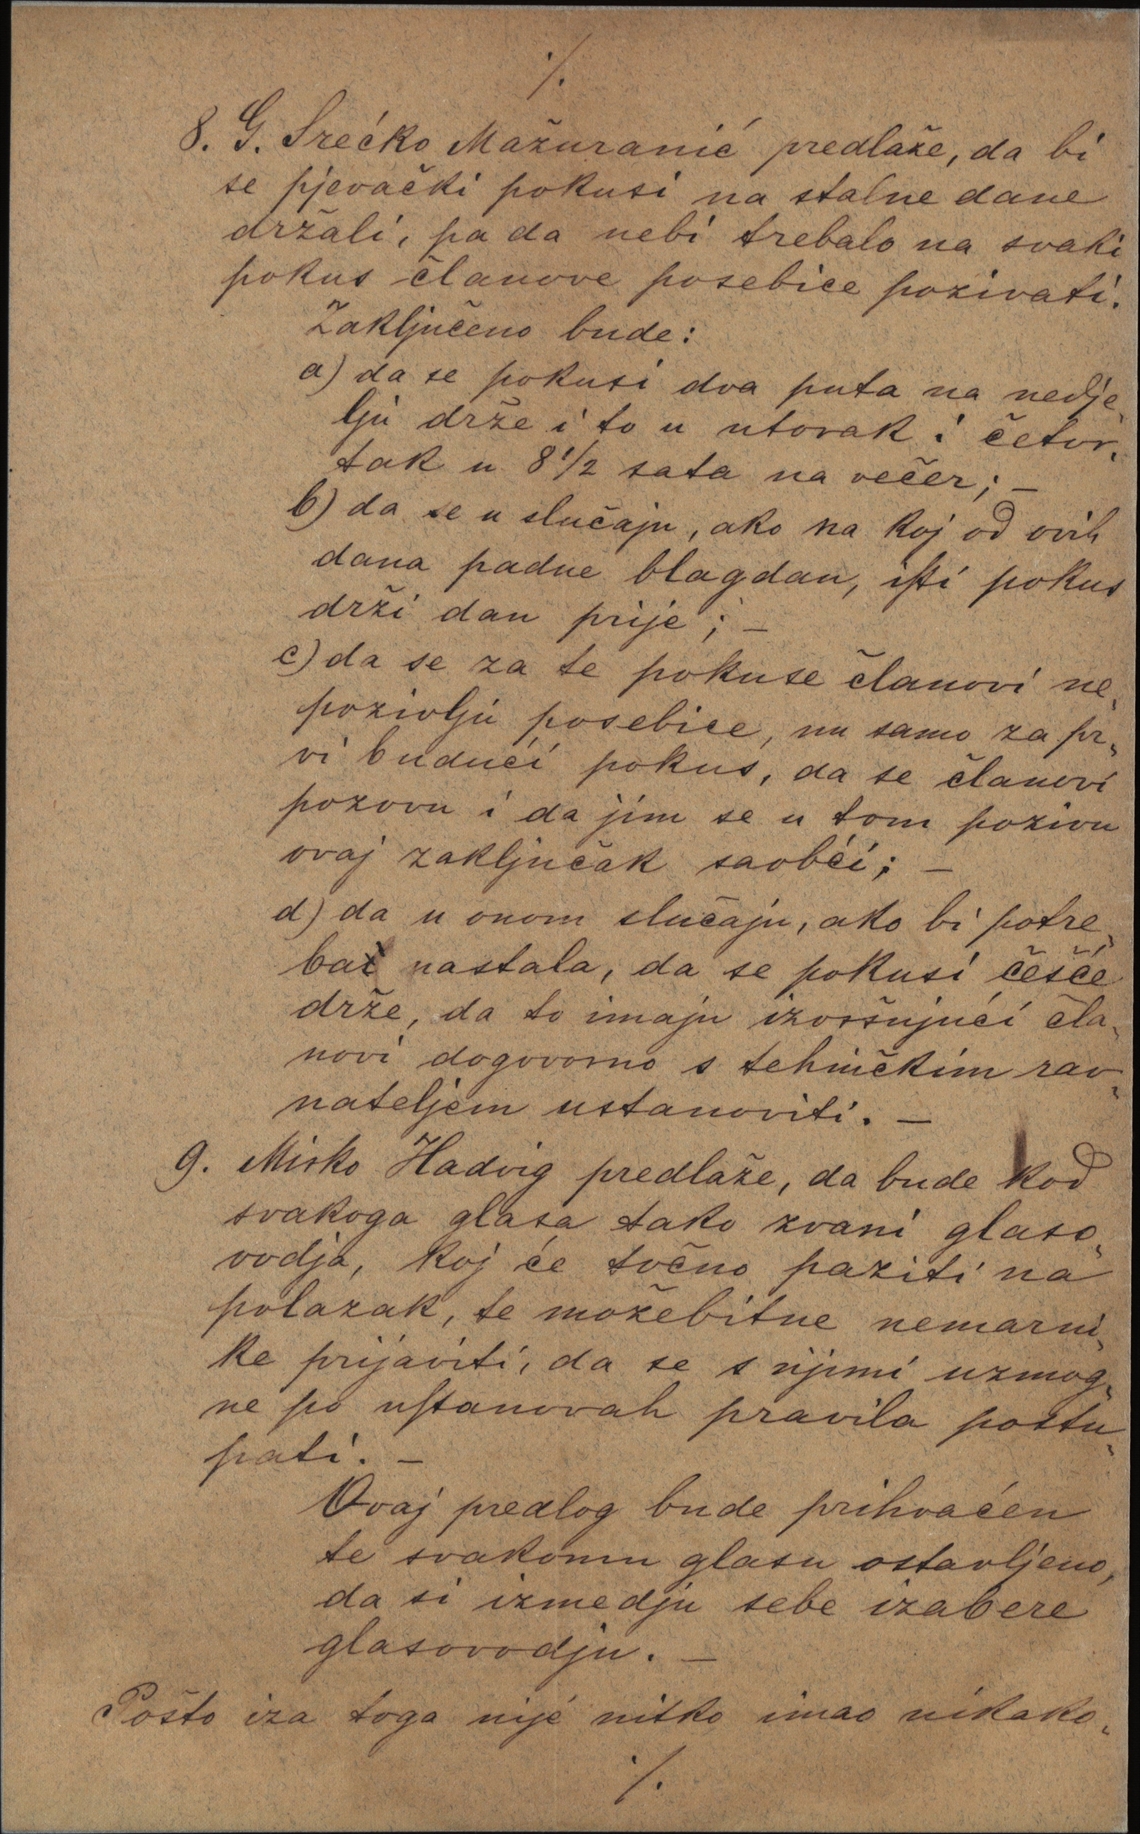 ·/.
8. G. Srećko Mažuranić predlaže, da bi
se pjevački pokusi na stalne dane
držali, pa da nebi trebalo na svaki
pokus članove posebice pozivati.
Zaključeno bude:
a) da se pokusi dva puta na nedje„
lju drže i to u utorak i četvr„
tak u 8 1/2 sata na večer; —
b) da se u slučaju, ako na koj od ovih
dana padne blagdan, isti pokus
drži dan prije; —
c) da se za te pokuse članovi ne„
pozivlju posebice, nu samo za pr„
vi budući pokus, da se članovi
pozovu i da jim se u tom pozivu
ovaj zaključak saobći; —
d) da u onom slučaju, ako bi potre„
ba nastala, da se pokusi češće
drže, da to imaju izvršujući čla„
novi dogovorno s tehničkim rav„
nateljem ustanoviti. —
9. Mirko Hadvig predlaže, da bude kod
svakoga glasa tako zvani glaso„
vodja, koj će točno paziti na
polazak, te možebitne nemarni„
ke prijaviti, da se s njimi uzmog„
ne po ustanovah pravila postu„
pati. —
Ovaj predlog bude prihvaćen
te svakomu glasu ostavljeno,
da si izmedju sebe izabere
glasovodju. —
Pošto iza toga nije nitko imao nikako„
·/.